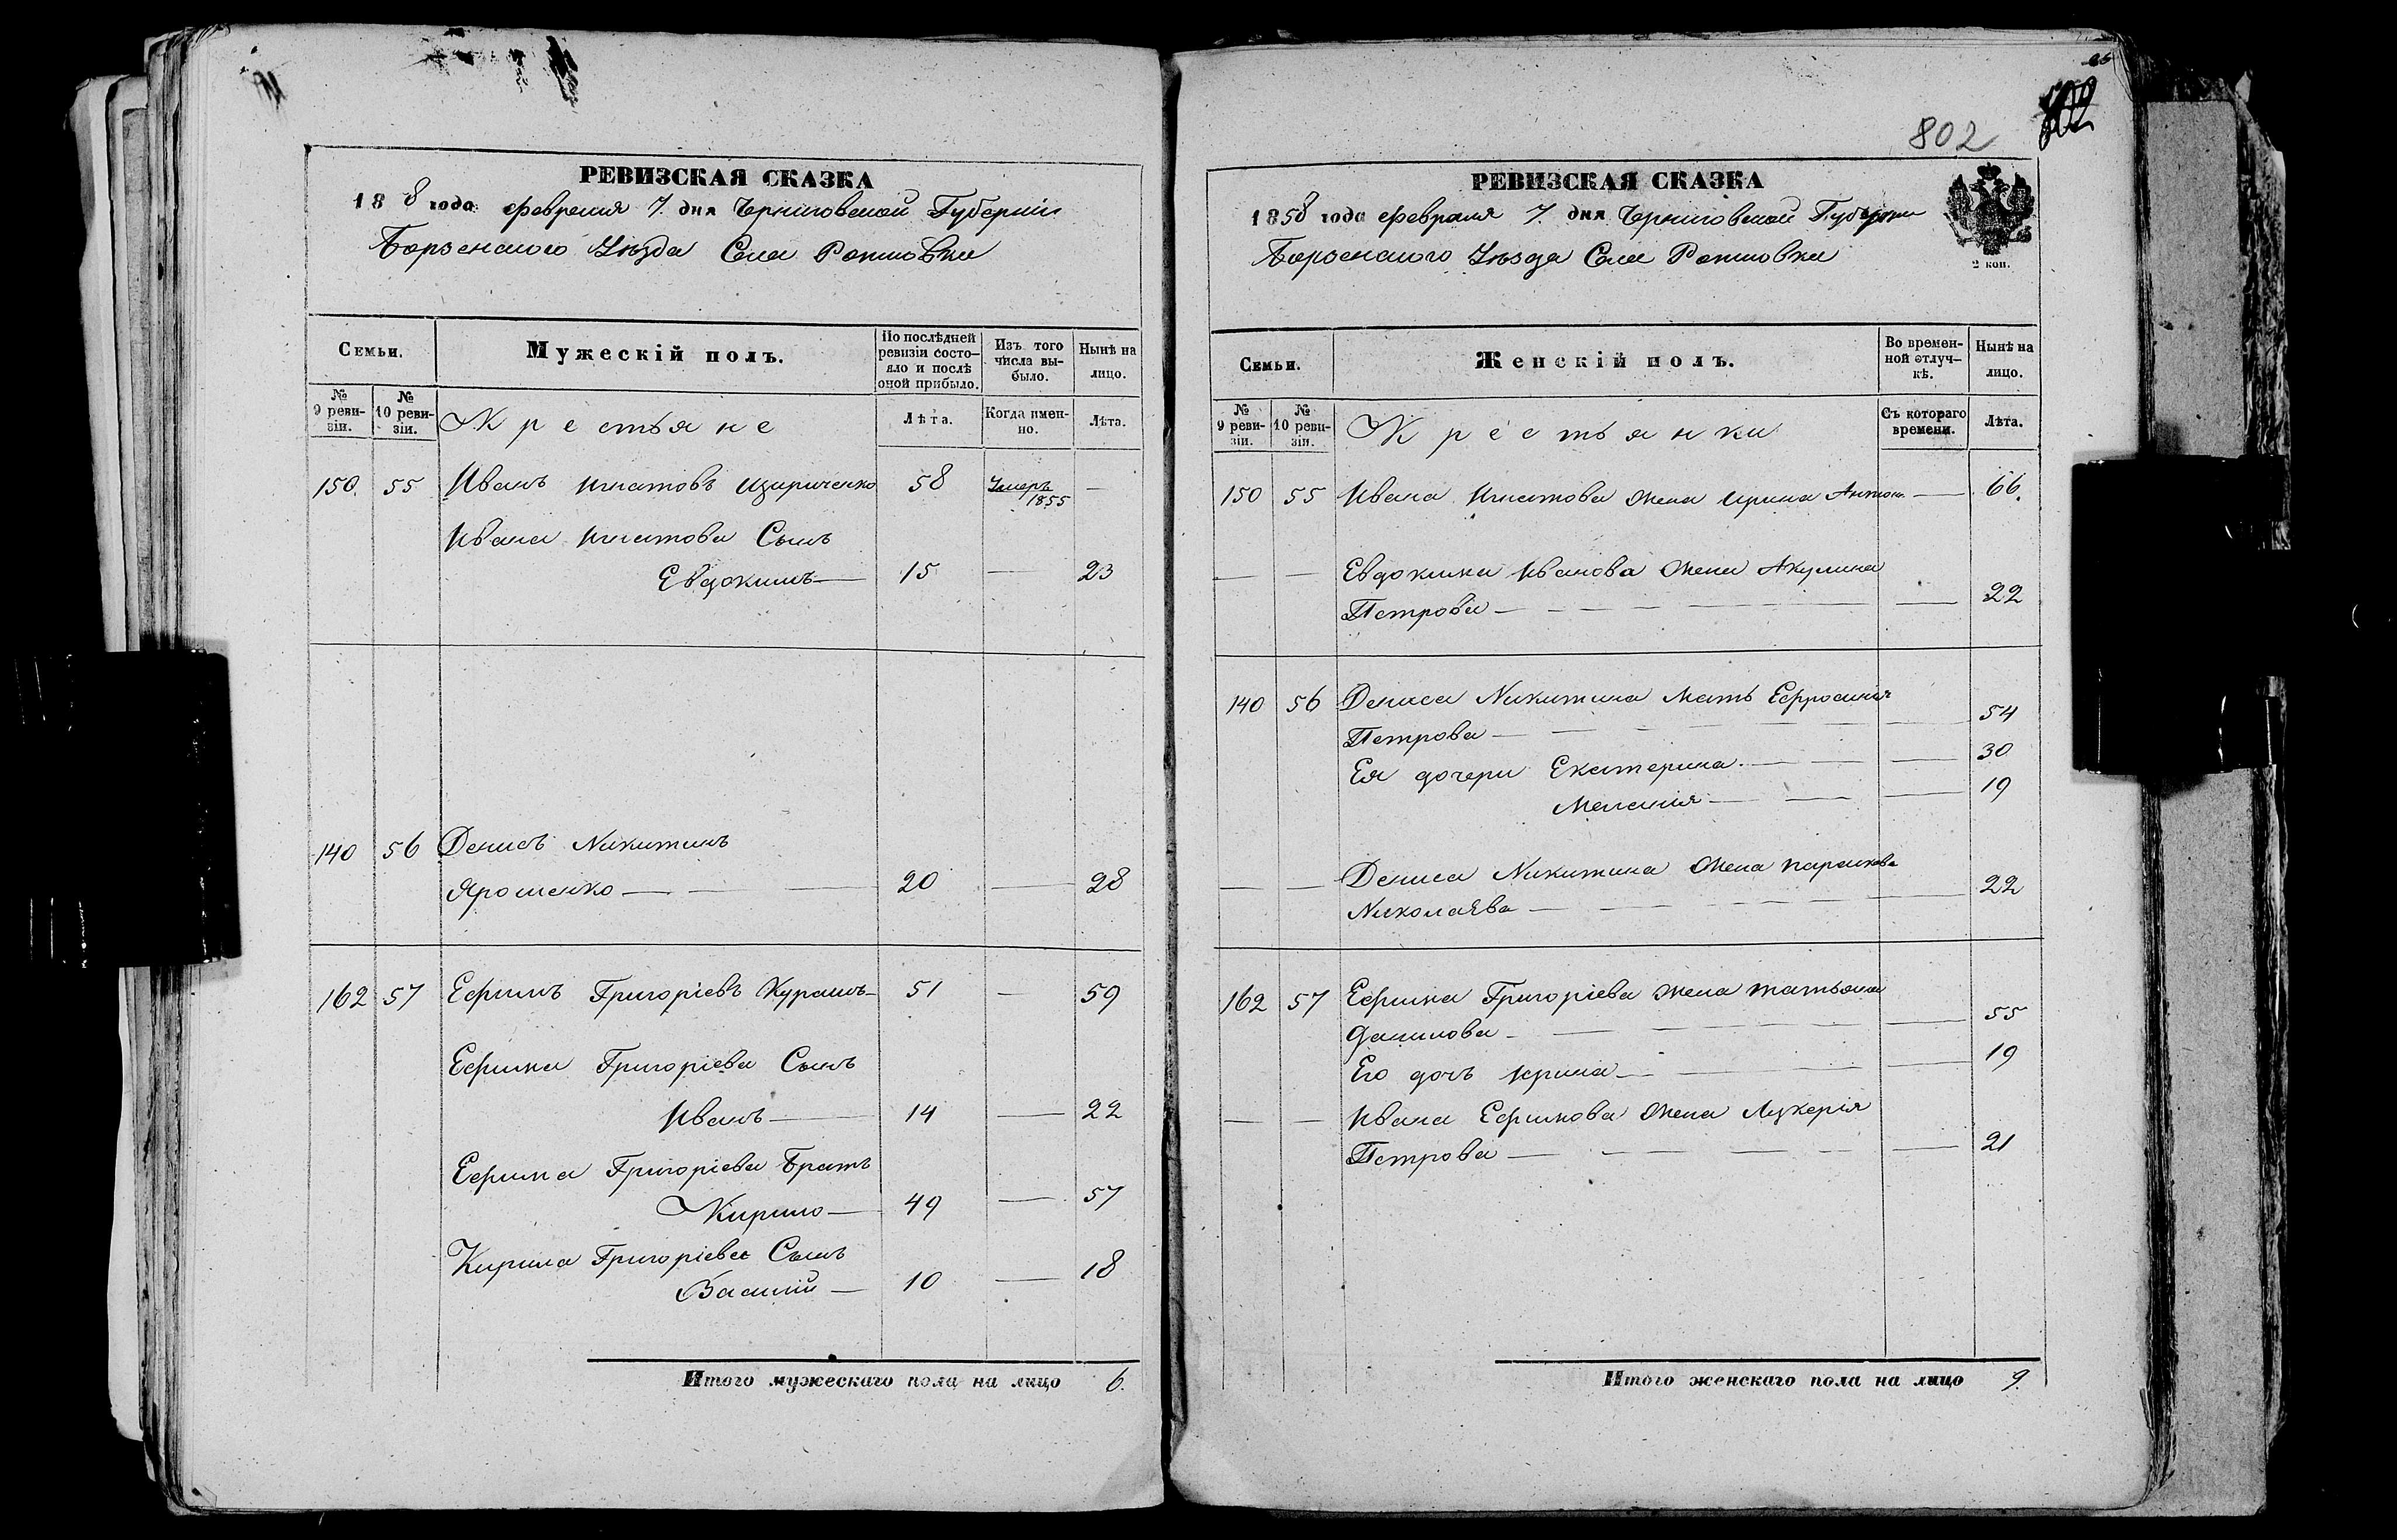 РЕВИЗСКАЯ СКАЗКА
18 8 года февраля 7. дня Черниговской Губерніи
Борзенского Уѣзда Села
Семьи.
Мужескій полъ.
По послѣдней ревизіи состо-
яло и послѣ
оной прибыло.
Изъ того
числа вы-
было.
Нынѣ на
лицо.
№
9 реви-
зіи.
№
10 реви-
зіи.
Крестьяне
Лѣта.
Когда имен-
но.
Лѣта.
150. 55 Иванъ Игнатовъ 58 Умеръ 1855 —
Ивана Игнатова Сынъ
Евдокимъ — 15 — 23
140 56 Денисъ Никитинъ
Ярошенко — 20 — 28
162 57 Ефимъ Григоріевъ 51 — 59
Ефима Григоріева Сынъ
Иванъ — 14 — 22
Ефима Григоріева Братъ
Кирило — 49 — 57
Кирила Григоріева Сынъ
Василій — 10 — 18
Итого мужескаго пола на лицо 6.
802
РЕВИЗСКАЯ СКАЗКА
1858 года февраля 7. дня Черниговской Губерніи
Борзенского Уѣзда Села
2 коп.
Семьи.
Женскій полъ.
Во времен-
ной отлуч-
кѣ.
Нынѣ на
лицо.
№
9 реви-
зіи.
№
10 реви-
зіи.
Крестьянки
Съ котораго
времени.
Лѣта.
150 55 Ивана Игнатова жена Ирина Антон. — 66.
— — Евдокима Иванова жена Акулина
Петрова — 22
140 56 Дениса Никитина Мать Ефросинія
Петрова — 54
Ея дочери Екатерина — 30
Меланія — 19
— — Дениса Никитина жена Параскева
Николаева — 22
162 57 Ефима Григоріева жена Татьяна
Данилова — 55
Его дочь Ирина — 19
— — Ивана Ефимова жена Лукерія
Петрова — 21
Итого женскаго пола на лицо 9.